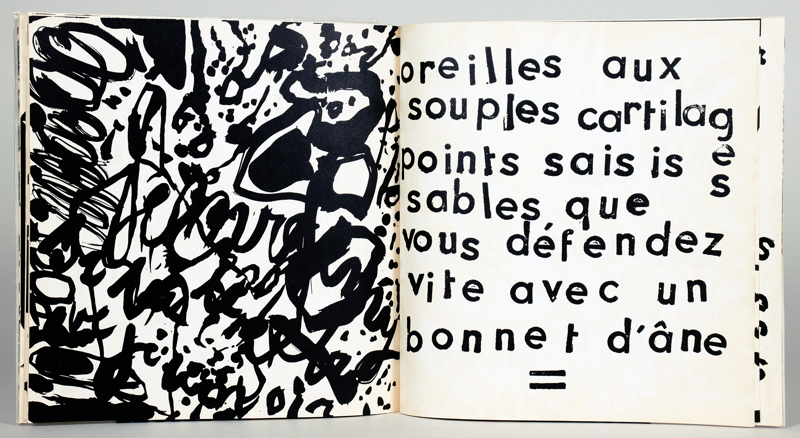 oreilles aux
souples cartilages
points saisis
sables que
vous défendez
vite avec un
bonnet d'âne
=